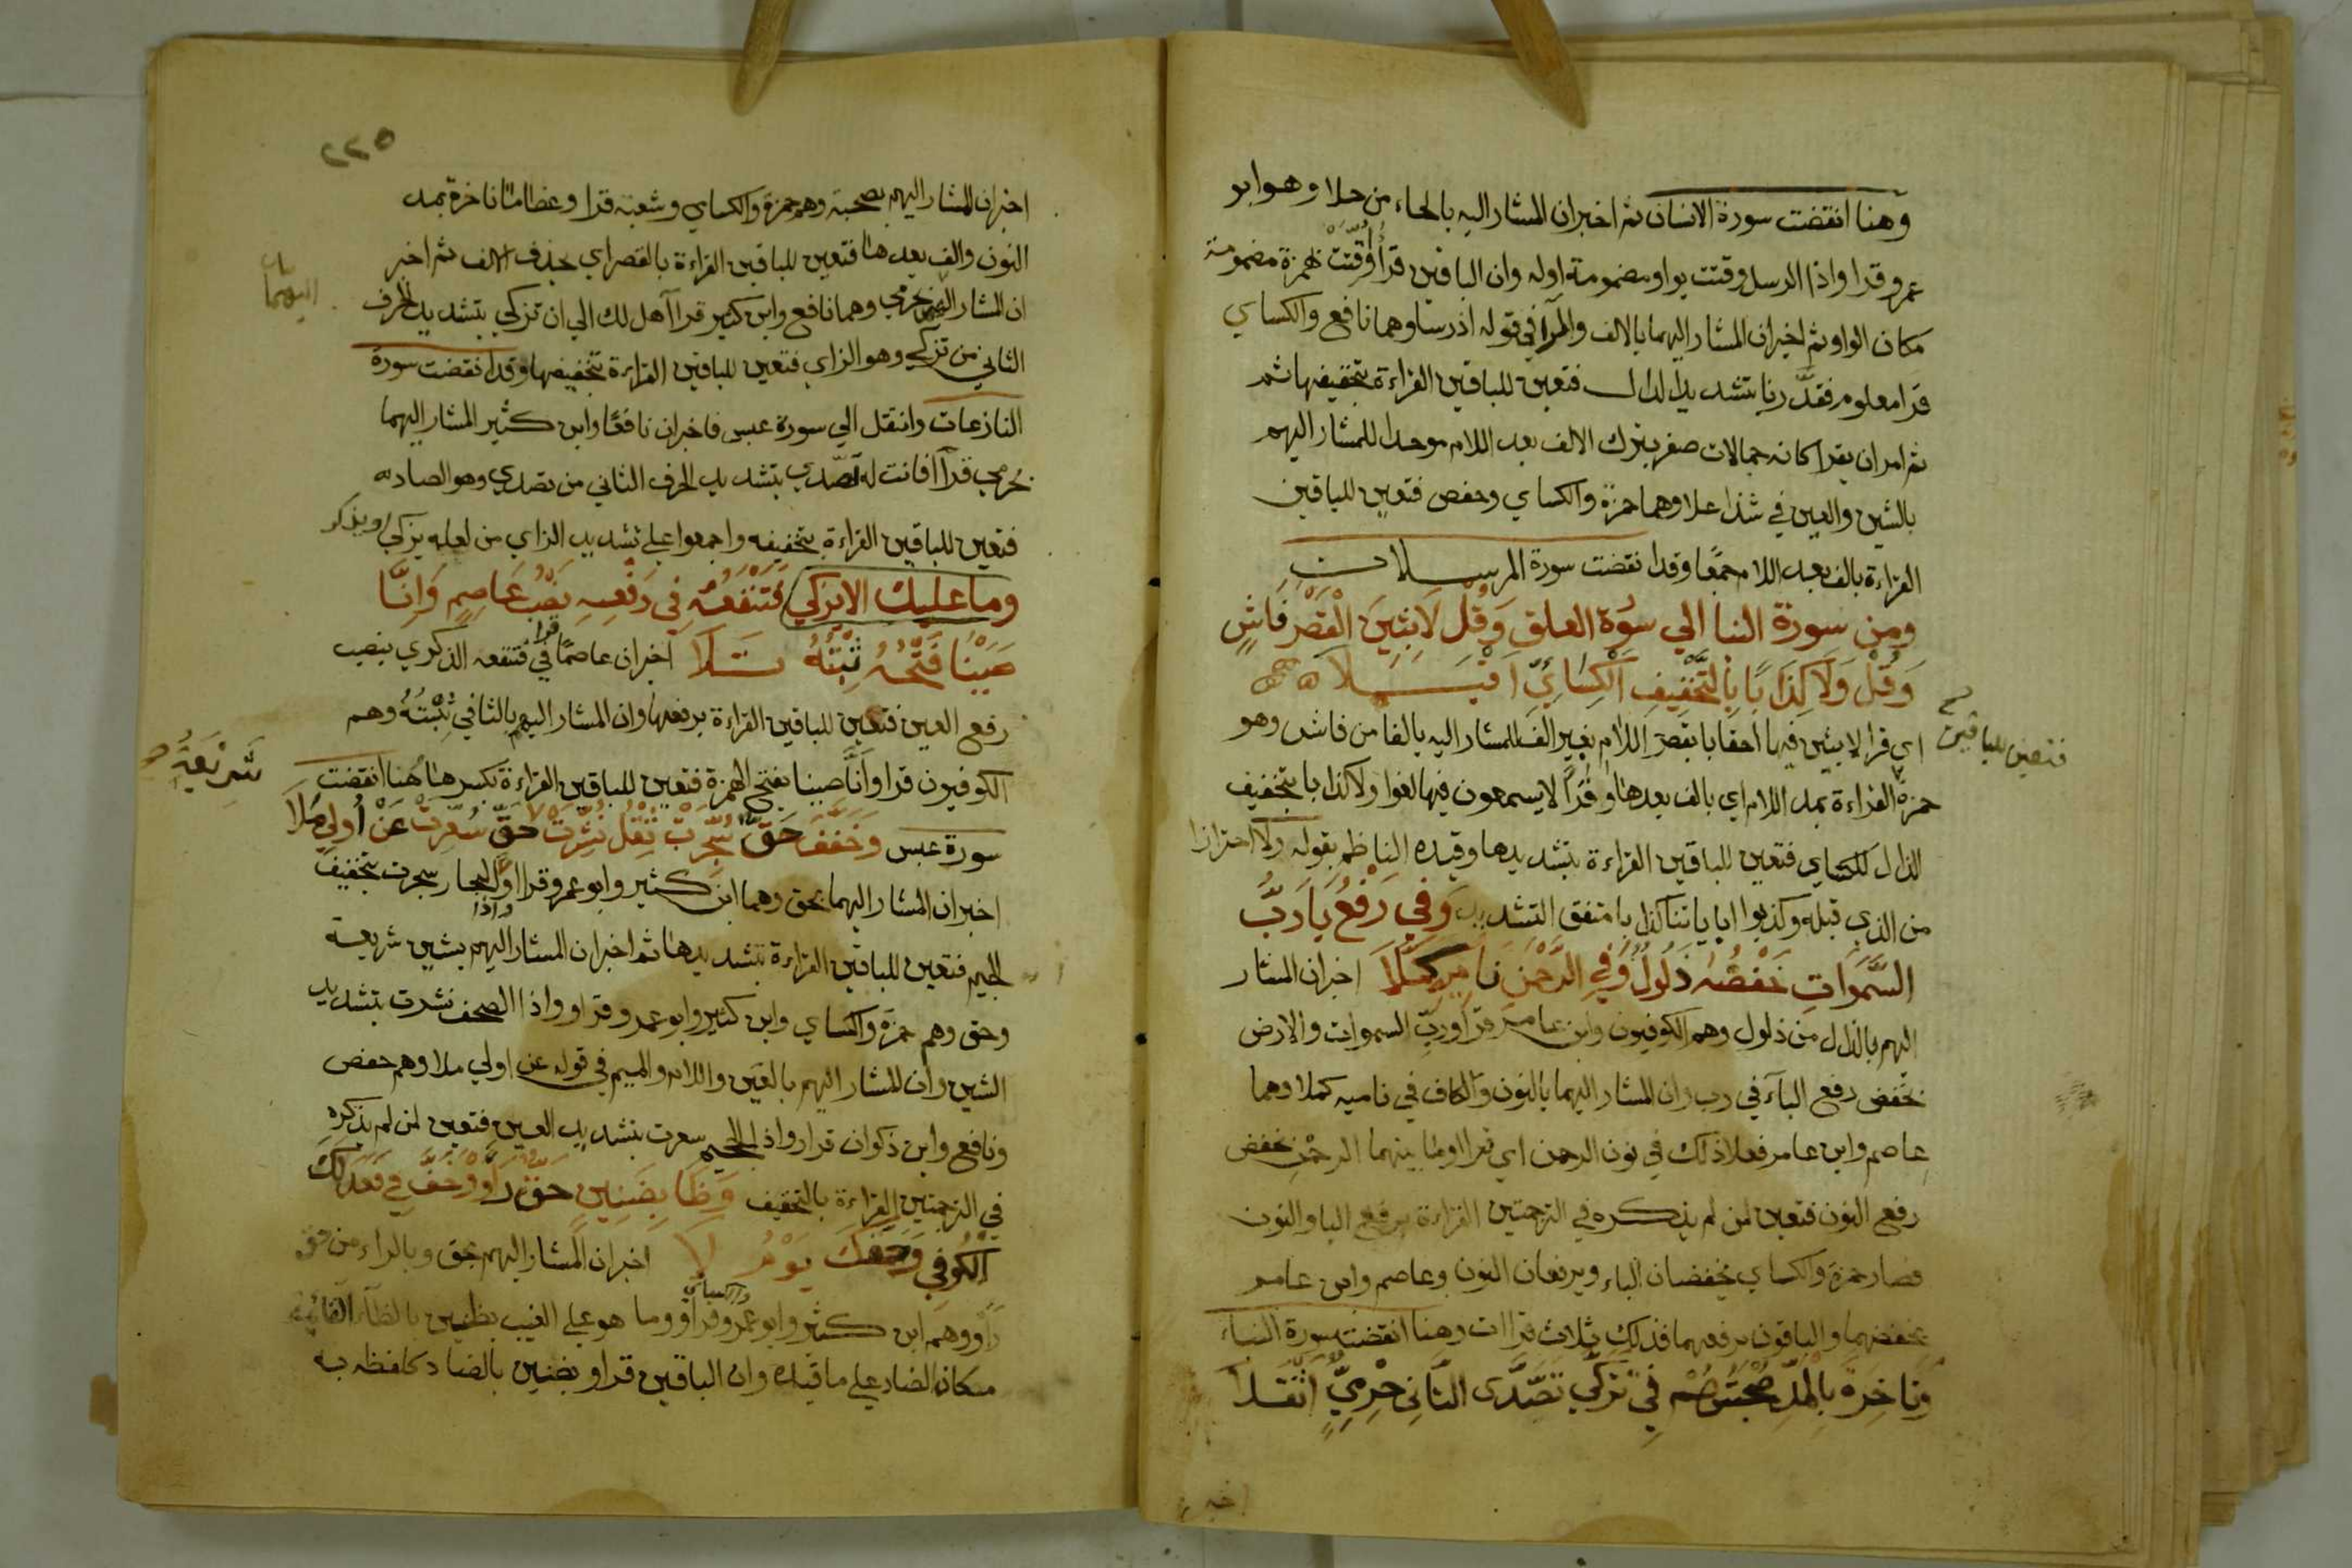 وهنا انقضت سورة الانسان ثم اخبر ان المشار اليه بالحاء من حلا وهو ابو
عمرو قرا واذا الرسل وقتت بواو مضمومة اوله وان الباقين قرأ أُقِّتَتْ بهمزة مضمومة
مكان الواو ثم اخبر ان المشار اليهما بالالف والرا في قوله اذ رسا وهما نافع والكساي
قرا معلوم فقدَّرنا بتشديد الدال فتعين للباقين القراءة بتخفيفها ثم
ثم امر ان يقرا كانه جمالات صفر بترك الالف بعد اللام موحدا للمشار اليهم
بالشين والعين في شذا علا وهما حمزة والكساي وحفص فتعين للباقين
القراءة بالف بعد اللام جمعًا وقد انقضت سورة المرسلات
ومن سورة النبا الي سورة العلق وَقُل لَابِثِينَ الْقَصْرُ فَاشٍ
وَقُلْ وَلَا كِذَابًا بِالتَّخْفِيفِ الْكِسَائِيِّ اقْبَلا
اي قرا لابثين فيها احقابا بقصر اللام بغير الف للمشار اليه بالفا من فاش وهو
فتعين للباقين
حمزة القراءة بمد اللام اي بالف بعدها وقرأ لا يسمعون فيها لغوا ولا كذابا بتخفيف
الذال للكساي فتعين للباقين القراءة بتشديدها وقيده الناظم بقوله ولا احترازا
من الذي قبله وكذبوا باياتنا كذابا متفق التشديد وَفِي رَفْعِ يَا رَبُّ
السَّمَوَاتِ خَفْضُهُ ذَلُولٌ وَفِي الرَّحْمَنِ نَامِيهِ كَمَّلَا اخبر ان المشار
اليهم بالذال من ذلول وهم الكوفيون وابن عامر قرأ وربِّ السموات والارض
بخفض رفع الباء في رب وان المشار اليهما بالنون والكاف في ناميه كملا وهما
عاصم وابن عامر فعلا ذلك في نون الرحمن اي قراا وما بينهما الرحمن بخفض
رفع النون فتعين لمن لم يذكره في الترجمتين القراءة برفع البا والنون
فصار حمزة والكساي يخفضان الباء ويرفعان النون وعاصم وابن عامر
بخفضهما والباقون برفعهما فذلك ثلاث قراات وهنا انقضت سورة النباء
وَنَاخِرَةً بِالْمَدِّ صُحْبَتُهُمْ فِي تَزَكَّى تَصَدَّى الثَّانِي حِرْمِيٌّ اثْقَلا
٢٢٥
اخبر ان المشار اليهم بصحبة وهم حمزة والكساي وشعبة قرا وعظاما ناخرة بمد
النون والف بعدها فتعين للباقين القراءة بالقصر اي بحذف الالف ثم اخبر
ان المشار اليهما بحرمي وهما نافع وابن كثير قراا هل لك الي ان تزكي بتشديد الحرف
اليهما
الثاني من تزكي وهو الزاي فتعين للباقين القراءة بتخفيفها وقد انقضت سورة
النازعات وانتقل الي سورة عبس فاخبر ان نافعًا وابن كثير المشار اليهما
بحرمي قراا فانت له تصّدي بتشديد الحرف الثاني من تصدي وهو الصاد
فتعين للباقين القراءة بتخفيفه واجمعوا علي تشديد الزاي من لعله يزكي او يذكر
وما عليك الا يزكي فَتَنْفَعُهُ فِي رَفْعِهِ نَصْبُ عَاصِمٍ وَانَّا
صَبَبْنَا فَتْحُهُ ثَبْتُهُ تَلَا اخبر ان عاصمًا قرا في فتنفعه الذكري بنصب
رفع العين فتعين للباقين القراءة برفعها وان المشار اليهم بالثا في ثَبْتُهُ وهم
الكوفيون قرا وأنَّا صببنا بفتح الهمزة فتعين للباقين القراءة بكسرها هنا انقضت
سورة عبس وَخَفَّفَ حَقٌّ سُجِّرَتْ ثِقْلُ نُشِّرَتْ حَقٌّ سُعِّرَتْ عَنْ أُولِي مَلَا
شَرِيعَةُ
اخبر ان المشار اليهما بحق وهما ابن كثير وابو عمرو قراا واذا البحار سجرت بتخفيف
الجيم فتعين للباقين القراءة بتشديدها ثم اخبر ان المشار اليهم بشين شريعة
وحق وهم حمزة والكساي وابن كثير وابو عمرو قراو واذا الصحف نشرت بتشديد
الشين وان المشار اليهم بالعين واللام والميم في قوله عن اولي ملا وهم حفص
ونافع وابن ذكوان قرا واذا الجحيم سعرت بتشديد العين فتعين لمن لم يذكره
في الترجمتين القراءة بالتخفيف وَظَا بِضَنِينٍ حَقُّ رَاوٍ وَخَفَّ فِي فَعَدَلَكَ
الْكُوفِي وَحَقُّكَ يَوْمُ لَا اخبر ان المشار اليهم بحق وبالراء من حق
راو وهم ابن كثير وابو عمرو والكساي قراو وما هو علي الغيب بظنين بالظاء القائمة
مكان الضاد علي ما قيده وان الباقين قراو بضنين بالضاد كلفظه به